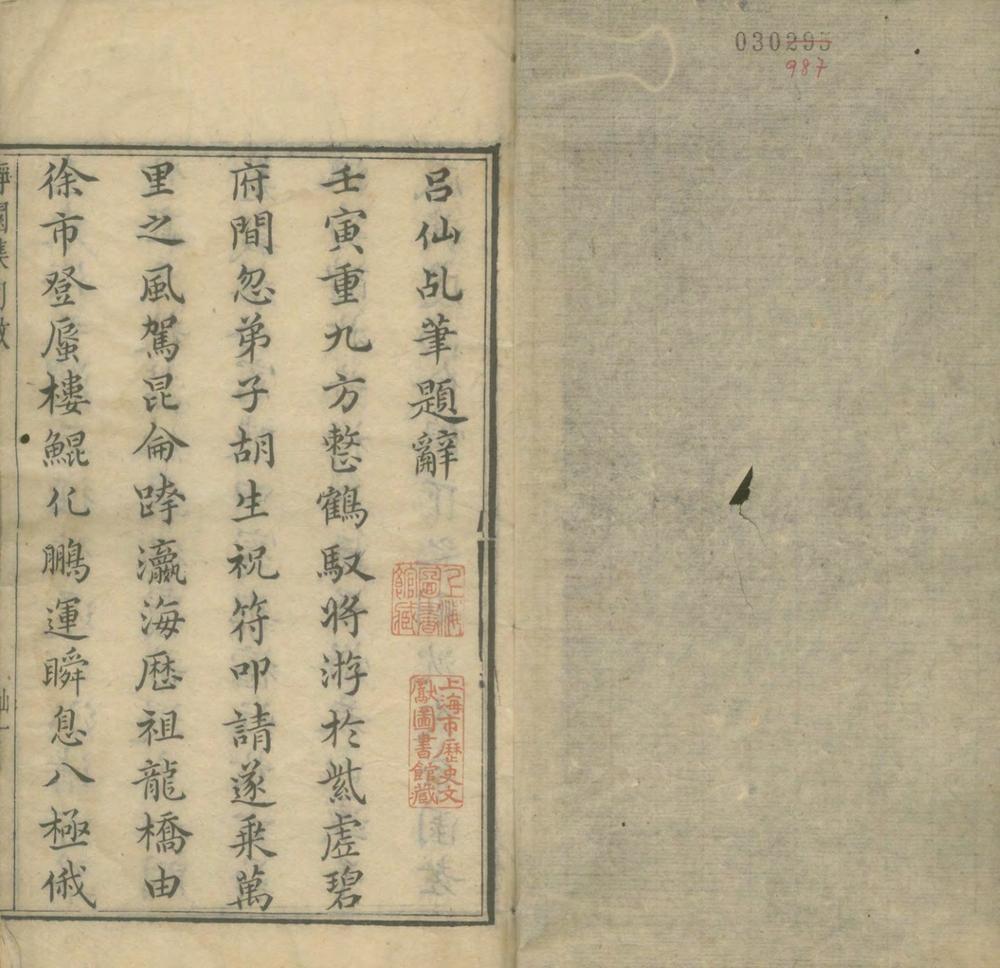 030295
987
呂仙乩筆題辭
壬寅重九方整鶴馭將游於紫虛碧
府間忽弟子胡生祝符叩請遂乗萬
里之風駕昆侖跨瀛海歷祖龍橋由
徐市登蜃樓鯤化鵬運瞬息八極俄
上海圖書館藏
上海市歷史文獻圖書館藏